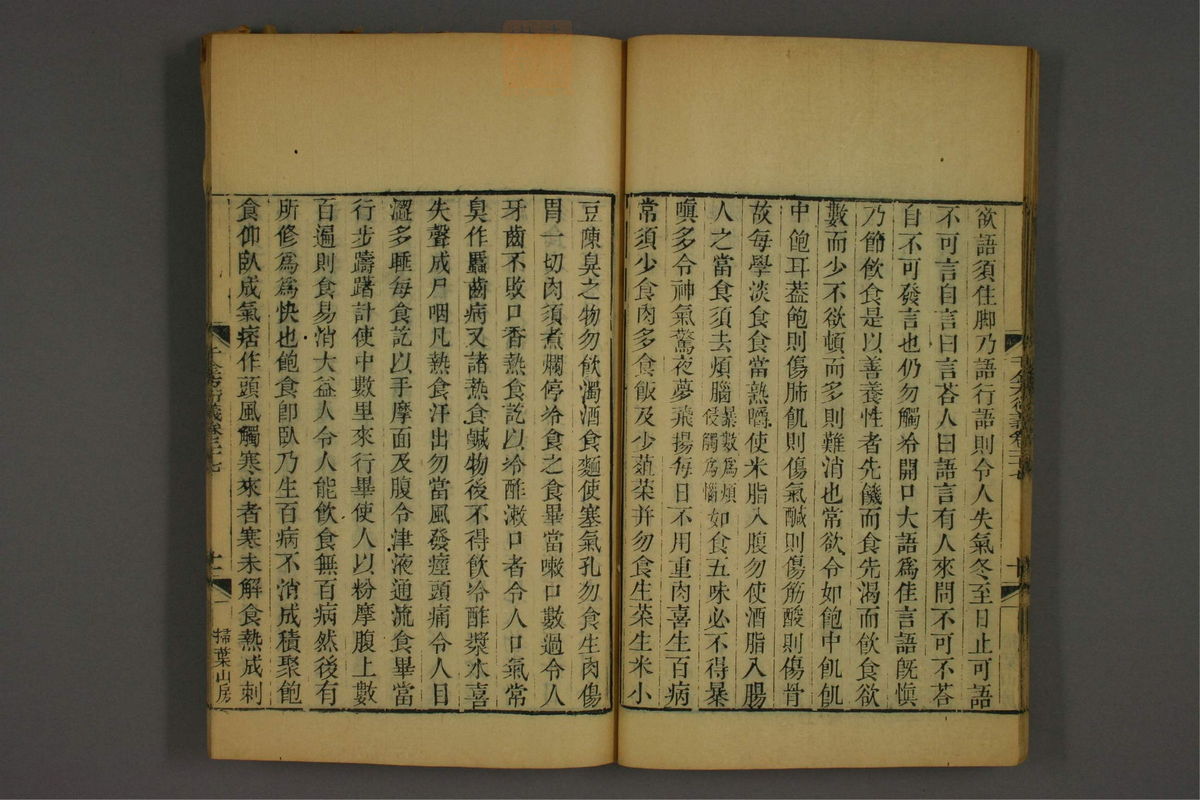 欲語須住脚乃語行語則令人失氣冬至日止可語
不可言自言曰言荅人曰語言有人來問不可不荅
自不可發言也仍勿觸冷開口大語爲佳言語旣愼
乃節飮食是以善養性者先饑而食先渴而飮食欲
數而少不欲頓而多則難消也常欲令如飽中飢飢
中飽耳蓋飽則傷肺飢則傷氣鹹則傷筋酸則傷骨
故每學淡食食當熟嚼使米脂入腹勿使酒脂入腸
人之當食須去煩腦暴數爲煩侵觸爲惱如食五味必不得暴
嗔多令神氣驚夜夢飛揚每日不用重肉喜生百病
常須少食肉多食飯及少菹菜并勿食生菜生米小
豆陳臭之物勿飮濁酒食麵使塞氣孔勿食生肉傷
胃一切肉須煮爛停冷食之食畢當嗽口數過令人
牙齒不敗口香熱食訖以冷酢漱口者令人口氣常
臭作䘌齒病又諸熱食鹹物後不得飮冷酢漿水喜
失聲成尸咽凡熱食汗出勿當風發痙頭痛令人目
澀多睡每食訖以手摩面及腹令津液通流食畢當
行步躊躇計使中數里來行畢使人以粉摩腹上數
百遍則食易消大益人令人能飮食無百病然後有
所修爲爲快也飽食卽臥乃生百病不消成積聚飽
食仰臥成氣痞作頭風觸寒來者寒未解食熱成刺
千金方衍義卷二十七
十一
掃葉山房